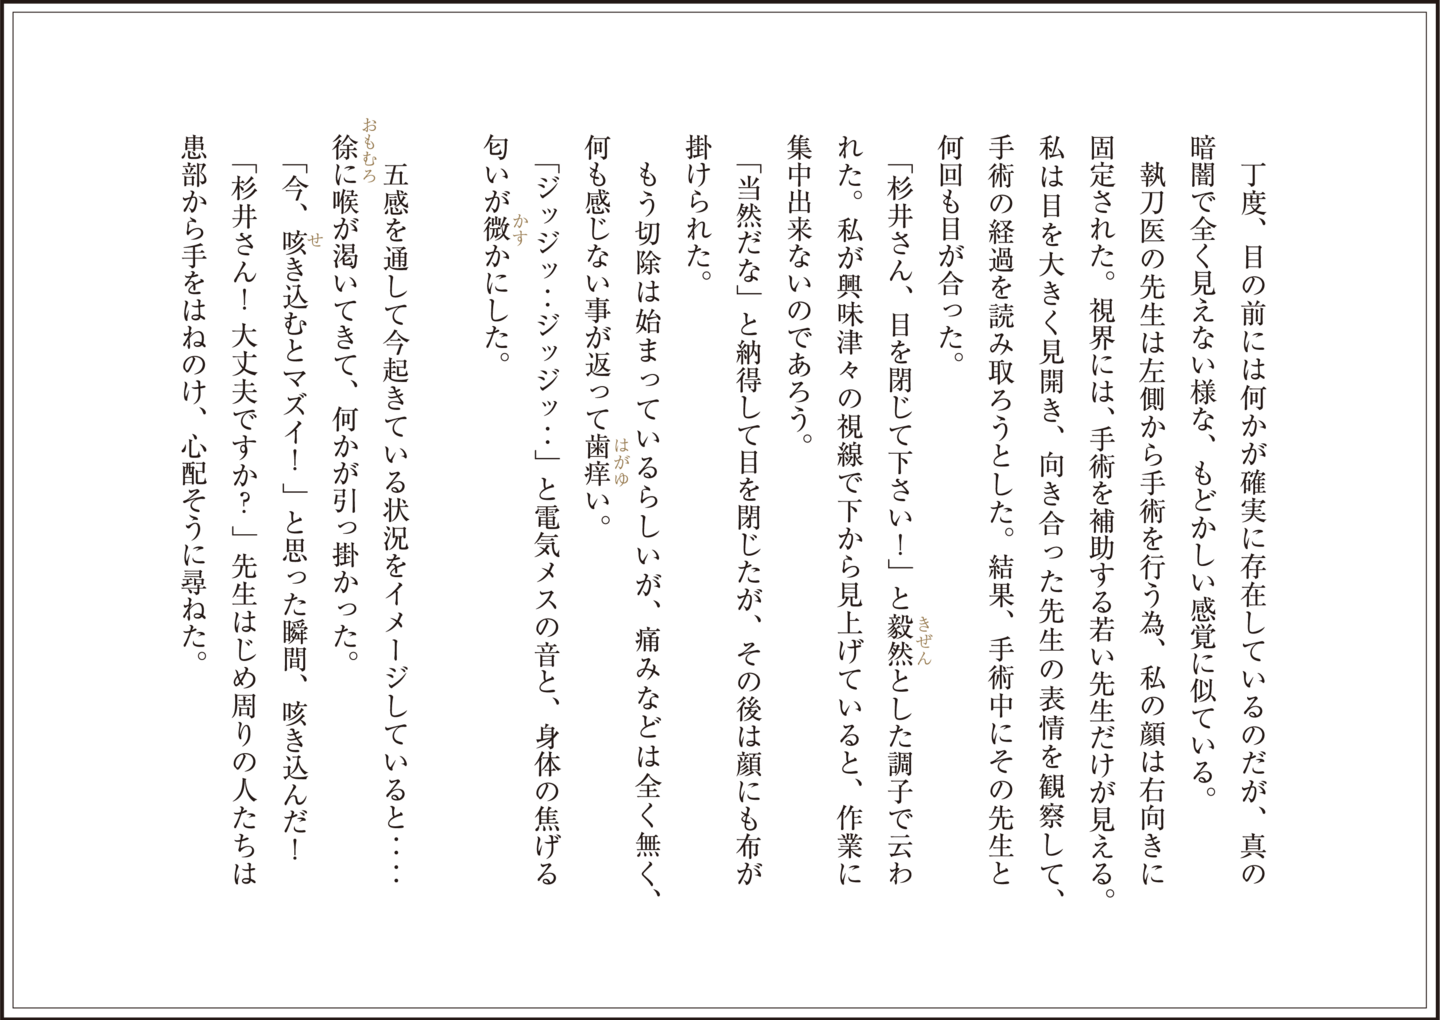 丁度、目の前には何かが確実に存在しているのだが、真の
暗闇で全く見えない様な、もどかしい感覚に似ている。
　執刀医の先生は左側から手術を行う為、私の顔は右向きに
固定された。視界には、手術を補助する若い先生だけが見える。
私は目を大きく見開き、向き合った先生の表情を観察して、
手術の経過を読み取ろうとした。結果、手術中にその先生と
何回も目が合った。
「杉井さん、目を閉じて下さい！」と毅然とした調子で云わ
きぜん
れた。私が興味津々の視線で下から見上げていると、作業に
集中出来ないのであろう。
「当然だな」と納得して目を閉じたが、その後は顔にも布が
掛けられた。
　もう切除は始まっているらしいが、痛みなどは全く無く、
何も感じない事が返って歯痒い。
はがゆ
「ジッジッ‥ジッジッ‥」と電気メスの音と、身体の焦げる
匂いが微かにした。
かす
　五感を通して今起きている状況をイメージしていると‥‥
徐に喉が渇いてきて、何かが引っ掛かった。
おもむろ
「今、咳き込むとマズイ！」と思った瞬間、咳き込んだ！
せ
「杉井さん！大丈夫ですか？」先生はじめ周りの人たちは
患部から手をはねのけ、心配そうに尋ねた。